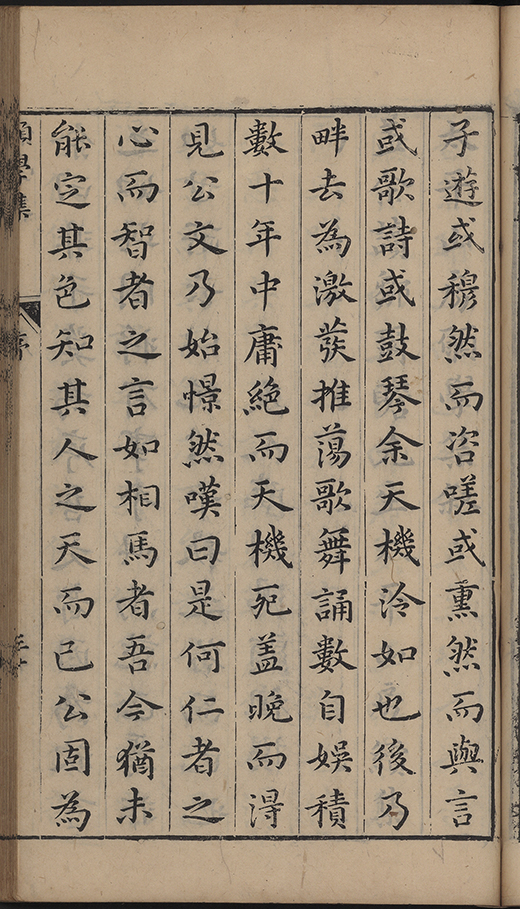 子遊或穆然而咨嗟或熏然而與言
或歌詩或鼓琴余天機泠如也後乃
畔去為激發推蕩歌舞誦數自娛積
數十年中庸絕而天機死盖晚而得
見公文乃始憬然嘆曰是何仁者之
心而智者之言如相馬者吾今猶未
能定其色知其人之天而已公固為
學集 序